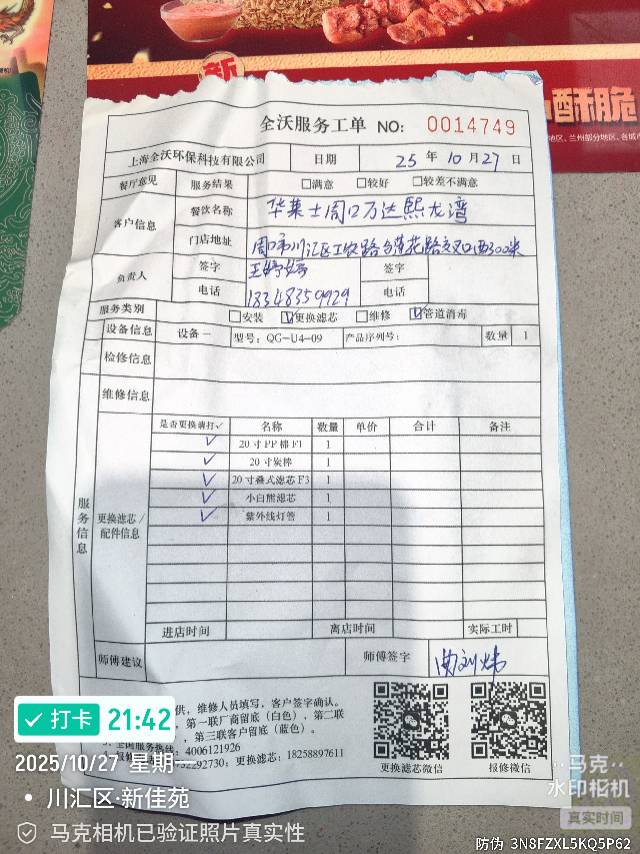 新
酥脆
全沃服务工单 NO: 0014749
上海全沃环保科技有限公司 日期 25 年 10 月 27 日
餐厅意见 服务结果 □满意 □较好 □较差不满意
客户信息 餐饮名称 华莱士周口万达熙龙湾
门店地址 周口市川汇区工农路与莲花路交叉口西300米
负责人 签字 王婷婷 签字
电话 13348359929 电话
服务类别 □安装 ☑更换滤芯 □维修 ☑管道消毒
设备信息 设备一 型号: QG-U4-09 产品序列号: 数量 1
检修信息
维修信息
服务信息
更换滤芯/配件信息
是否更换请打✓ 名称 数量 单价 合计 备注
✓ 20寸PP棉F1 1
✓ 20寸炭棒 1
✓ 20寸叠式滤芯F3 1
✓ 小白熊滤芯 1
✓ 紫外线灯管 1
进店时间 离店时间 实际工时
师傅建议 师傅签字
供, 维修人员填写, 客户签字确认。
第一联厂商留底(白色), 第二联
第三联客户留底(蓝色)。
3、全国服务热线: 4006121926
292730; 更换滤芯: 18258897611
更换滤芯微信 报修微信
打卡 21:42
2025/10/27 星期一
川汇区·新佳苑
马克相机已验证照片真实性
马克
水印相机
真实时间
防伪 3N8FZXL5KQ5P62